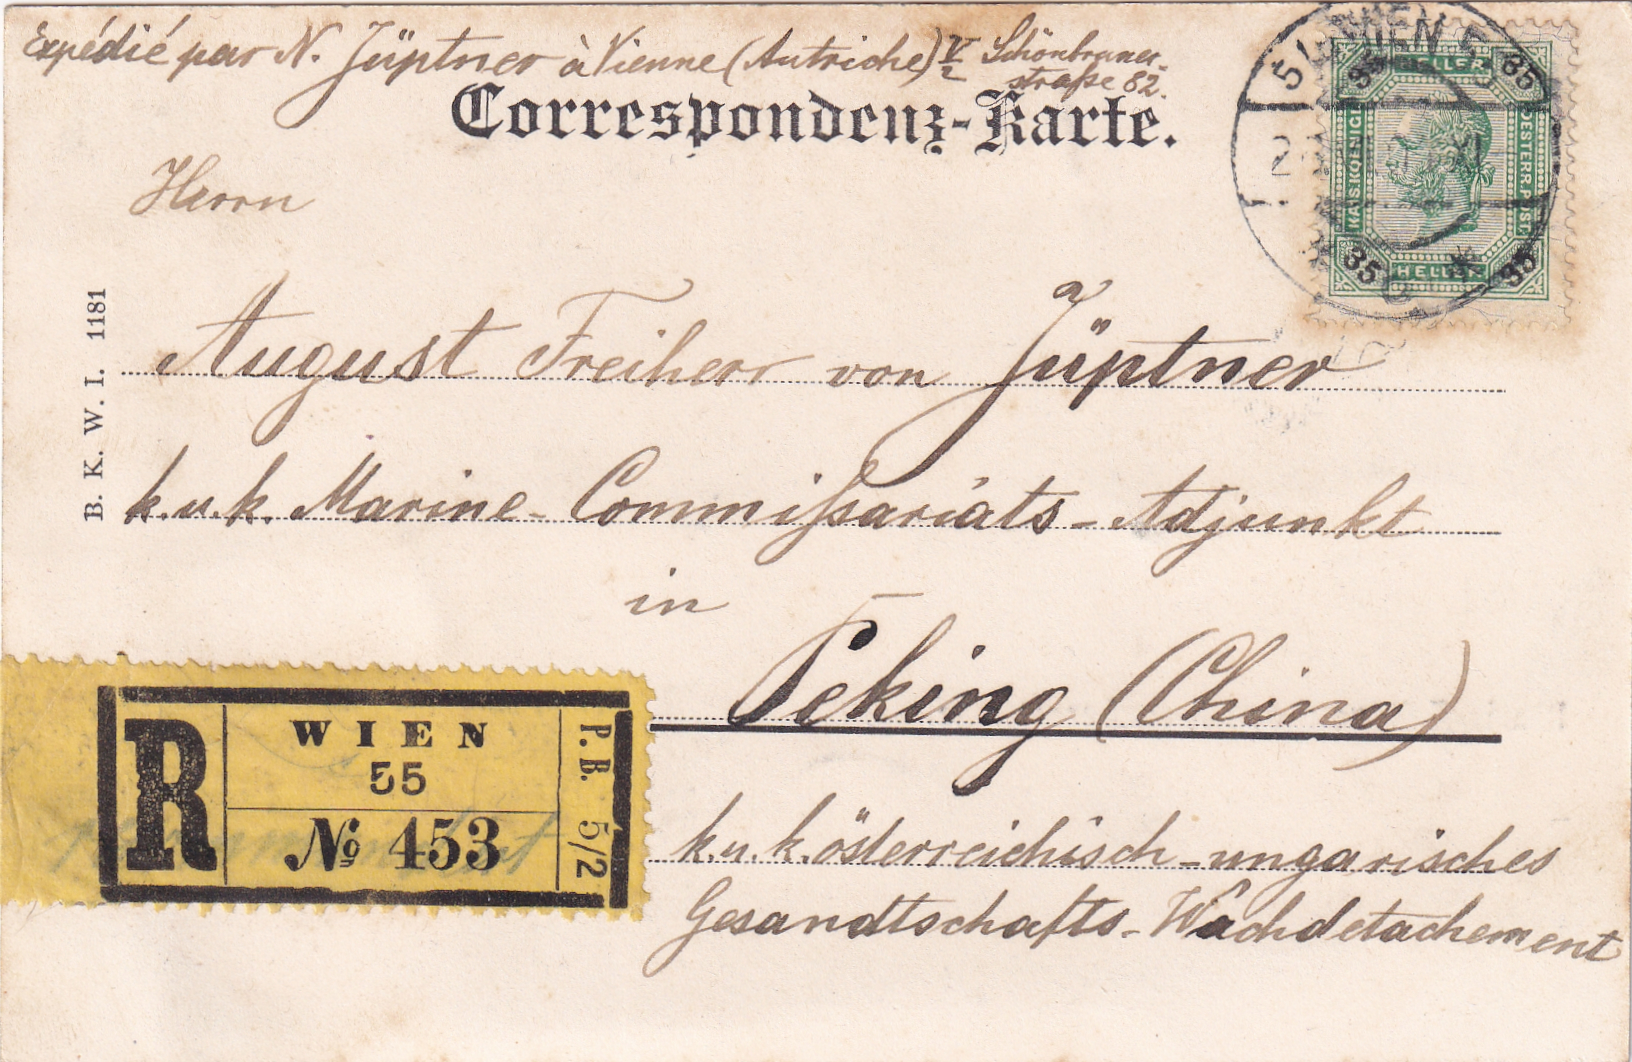 Expédié par N. Jüptner à Vienne (Autriche) V/2 Schönbruner-
straße 82.
Correspondenz-Karte.
5/2 WIEN
35 HELLER 35
KAIS.KOENIGL. OESTERR.POST.
35 HELLER 35
Herrn
August Freiherr von Jüptner
k.u.k. Marine-Commissariats-Adjunkt
in
Peking (China)
k.u.k. österreichisch-ungarisches
Gesandtschafts-Wachdetachement
B. K. W. I. 1181
R
WIEN
55
No 453
P.B. 5/2